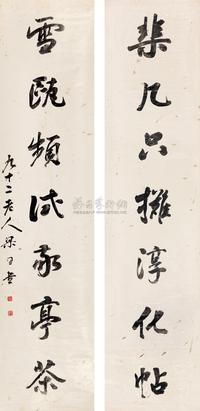 棐几只摊淳化帖
雪瓯频试敬亭茶
九十二老人梁同书